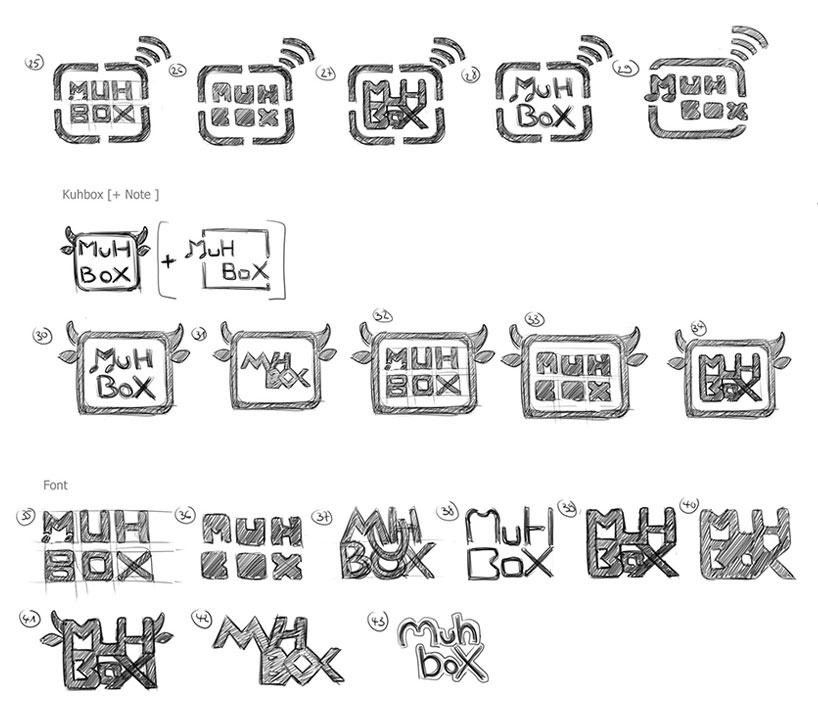 25
MUH
BOX
26
MUH
BOX
27
MUH
BOX
28
MuH
BoX
29
MUH
BOX
Kuhbox [+ Note ]
MuH
BoX
+
MuH
BoX
30
MuH
BoX
31
MUH
BOX
32
MUH
BOX
33
MUH
BOX
34
MUH
BOX
Font
35
MUH
BOX
36
MUH
BOX
37
MUH
BOX
38
MuH
BoX
39
MUH
BOX
40
MUH
BOX
41
MUH
BOX
42
MUH
BOX
43
muh
box